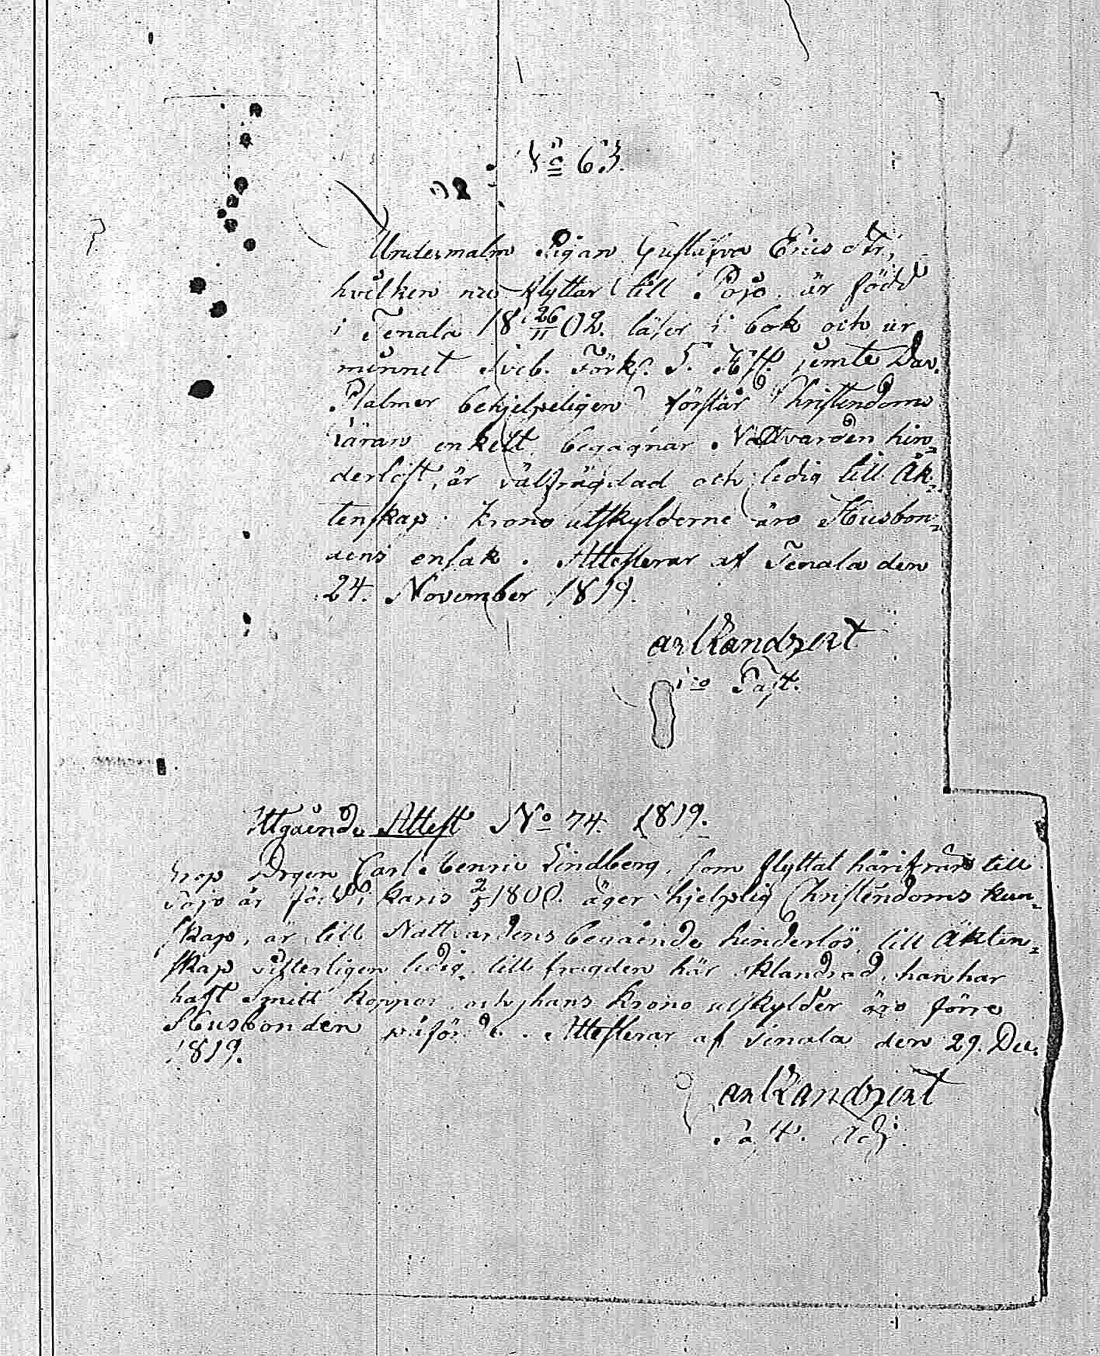 No 63.
Pigan Gustafva Ericsdtr,
hvilken nu flyttar till Pojo, är född
i Tenala 18 26/11 02. läser i bok och ur
minnet Sveb. Förkl. jemte Dav.
Psalmer behjelpeligen förstår Christendoms
läran enkelt, begagnar Nattvarden hin=
derlöst, är välfrägdad och ledig till Äk=
tenskap. Krono utskylderne äro Husbon=
dens ensak. Attesterar af Tenala den
24. November 1819.
Past.
Utgående Attest No 74. 1819.
Drgen Carl Henric Lindberg, som flyttat härifrån till
Pojo är född i Karis 2/5 1800. äger hjelplig Christendoms kun=
skap, är till Nattvardens begående hinderlös, till Äkten=
skap ledig, till frägden här oklandrad, han har
haft Smitt koppor och hans Krono utskylder äro förre
Husbonden påförde. Attesterar af Tenala den 29. Dec.
1819.
Past. Adj.